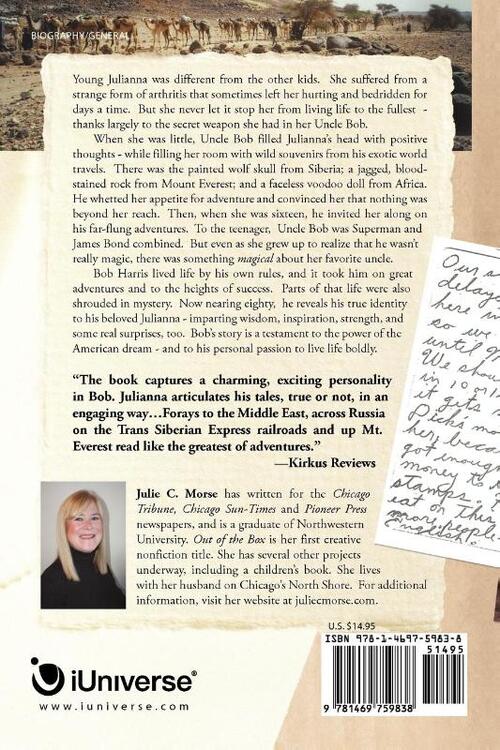 BIOGRAPHY/GENERAL
Young Julianna was different from the other kids. She suffered from a
strange form of arthritis that sometimes left her hurting and bedridden for
days a time. But she never let it stop her from living life to the fullest -
thanks largely to the secret weapon she had in her Uncle Bob.
When she was little, Uncle Bob filled Julianna's head with positive
thoughts - while filling her room with wild souvenirs from his exotic world
travels. There was the painted wolf skull from Siberia; a jagged, blood-
stained rock from Mount Everest; and a faceless voodoo doll from Africa.
He whetted her appetite for adventure and convinced her that nothing was
beyond her reach. Then, when she was sixteen, he invited her along on
his far-flung adventures. To the teenager, Uncle Bob was Superman and
James Bond combined. But even as she grew up to realize that he wasn't
really magic, there was something magical about her favorite uncle.
Bob Harris lived life by his own rules, and it took him on great
adventures and to the heights of success. Parts of that life were also
shrouded in mystery. Now nearing eighty, he reveals his true identity
to his beloved Julianna - imparting wisdom, inspiration, strength, and
some real surprises, too. Bob's story is a testament to the power of the
American dream - and to his personal passion to live life boldly.
"The book captures a charming, exciting personality
in Bob. Julianna articulates his tales, true or not, in an
engaging way...Forays to the Middle East, across Russia
on the Trans Siberian Express railroads and up Mt.
Everest read like the greatest of adventures."
—Kirkus Reviews
Julie C. Morse has written for the Chicago
Tribune, Chicago Sun-Times and Pioneer Press
newspapers, and is a graduate of Northwestern
University. Out of the Box is her first creative
nonfiction title. She has several other projects
underway, including a children's book. She lives
with her husband on Chicago's North Shore. For additional
information, visit her website at juliecmorse.com.
Our
delay
here in
so we
until
We shou
in 10 or
it gets
her, beca
got enough
money to
stamps.
eat on this
more people
English.
U.S. $14.95
ISBN 978-1-4697-5983-8
51495
9 781469 759838
iUniverse®
www.iuniverse.com